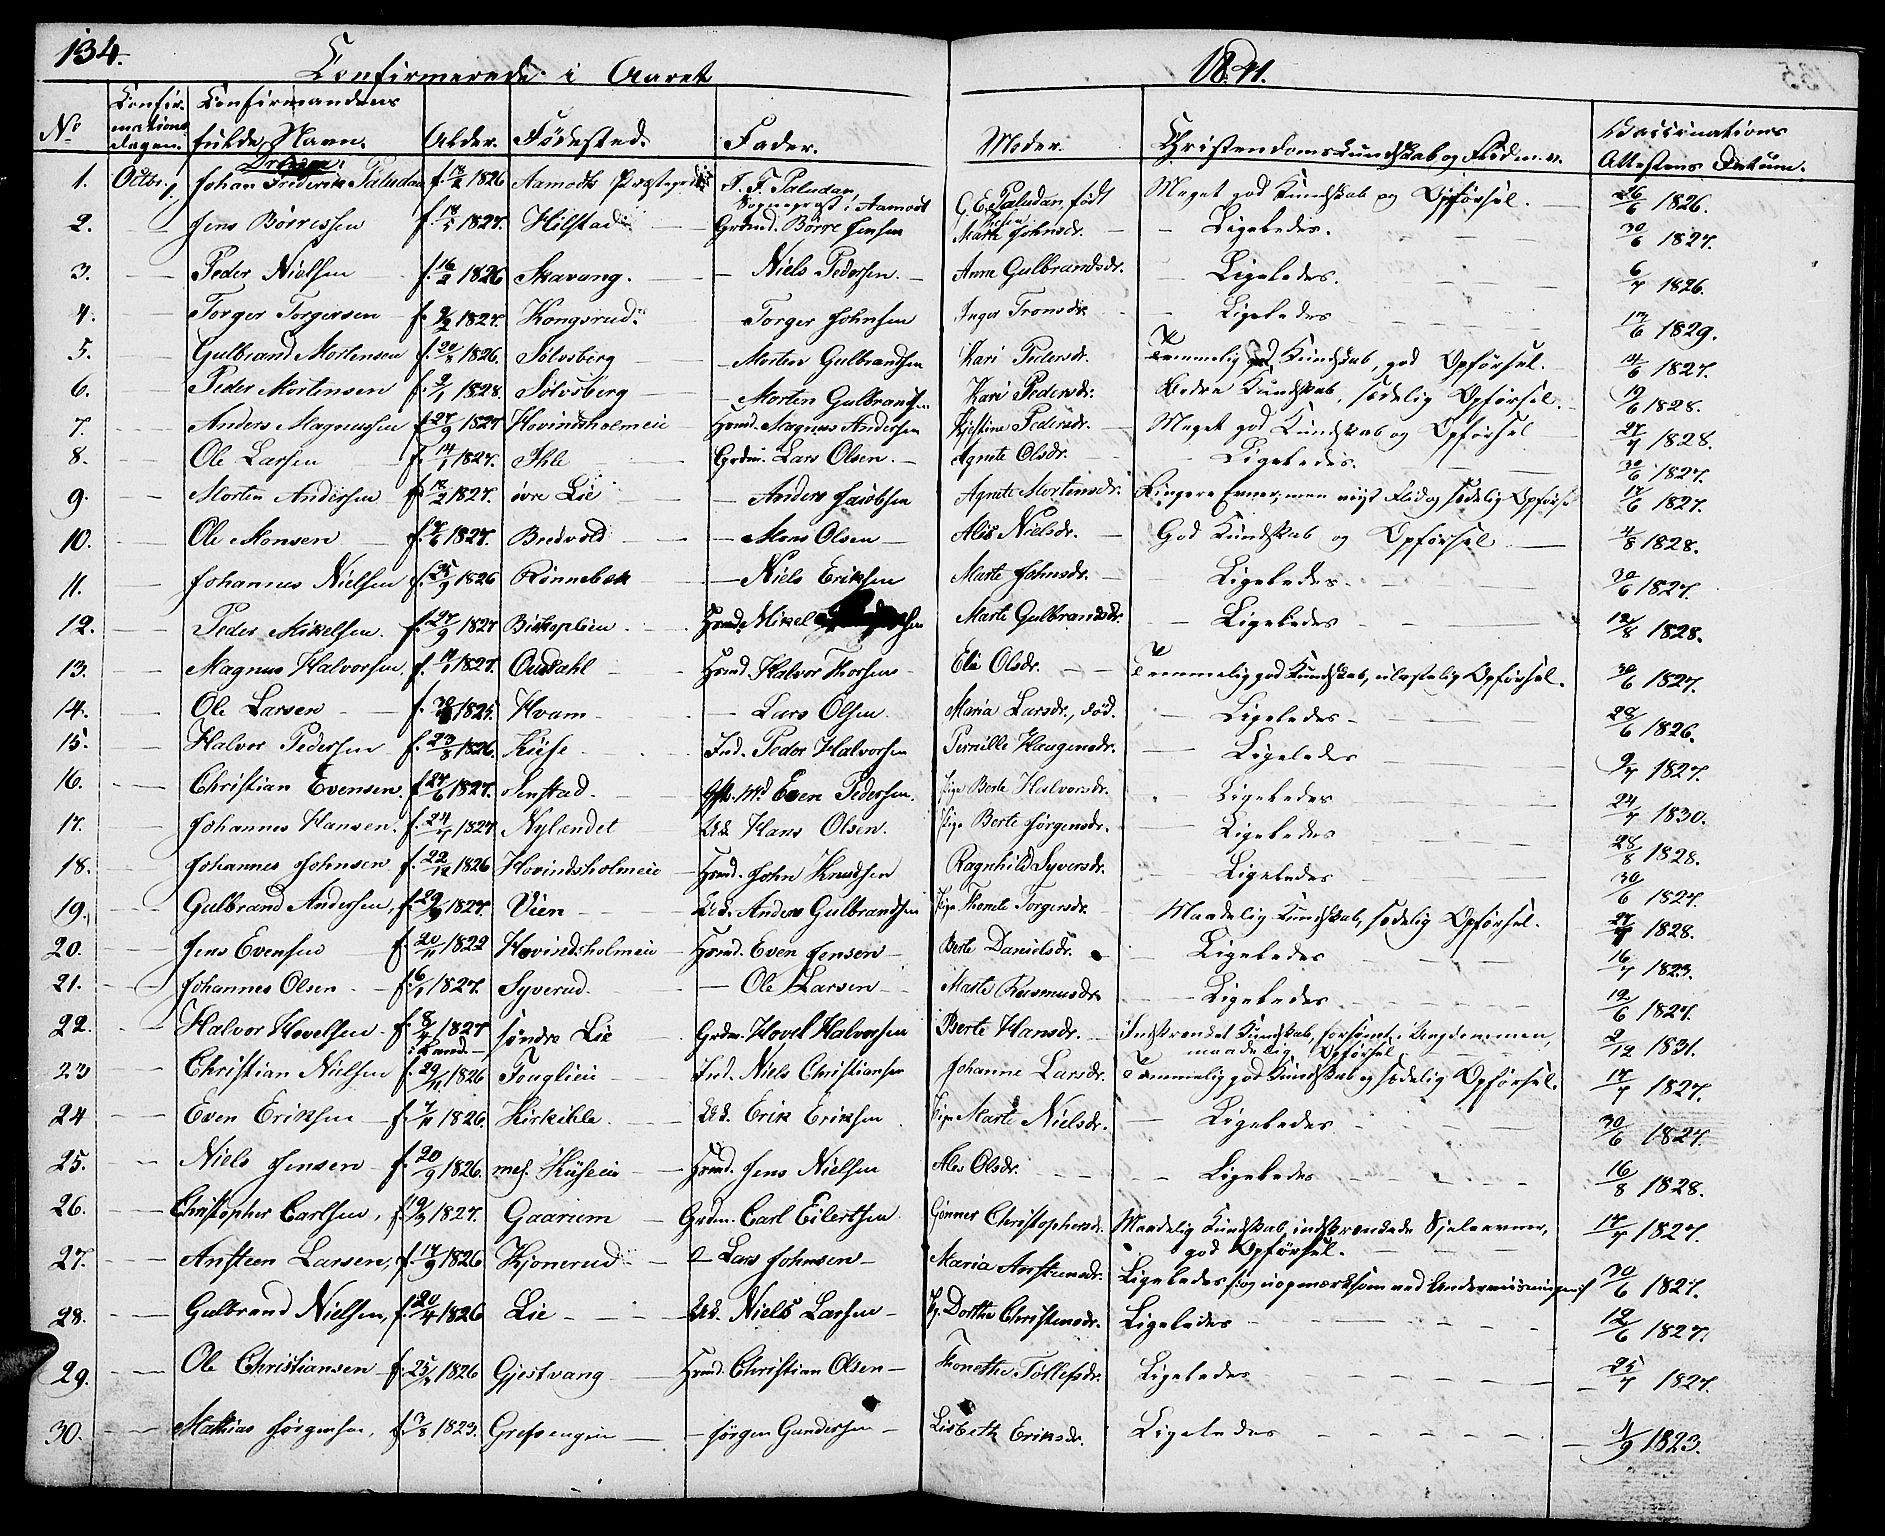 134.
Confirmerede i Aaret 1841.
No Confirmations dagen. Confirmandens fulde Navn. Alder. Fødested. Fader. Moder. Christendoms Kundskab og Flid m.v. Vaccinations Attestens Datum.
Drenge.
1. Octbr. 1. Johan Frederik Paludan f. 1826 Aamodts Præstegaard F. F. Paludan, Sognepræst i Aamodt C. E. Paludan, født Meget god Kundskab og Opførsel. 26/6 1826.
2. Jens Børressen f. 1827. Hilstad Grdmd. Børre Jensen Marte Johnsdr. Ligeledes. 30/6 1827.
3. Peder Nielsen f. 16/2 1826 Skavang. Niels Pedersen. Anne Gulbrandsdr. Ligeledes. 6/7 1826.
4. Torger Torgersen f. 9/2 1827. Kongsrud. Torger Johnsen Inger Tronsdr. Ligeledes 1829.
5. Gulbrand Mortensen f. 1826. Sølvsberg Morten Gulbrandsen Kari Pedersdr. Temmelig god Kundskab, god Opførsel. 14/6 1827.
6. Peder Mortensen f. 9/1 1828. Sølvsberg Morten Gulbrandsen Kari Pedersdr. Bedre Kundskab, sædelig Opførsel. 19/6 1828.
7. Anders Magnussen f. 27/9 1827 Hovindsholmeie Hsmd. Magnus Andersen Kjestine Pedersdr. Meget god Kundskab og Opførsel 27/7 1828.
8. Ole Larsen f. 14/1 1827. Ihle Grdm. Lars Olsen. Agnete Olsdr. Ligeledes. 30/6 1827.
9. Morten Andersen f. 1827. øvre Lie Anders Jacobsen Agnete Mortensdr. Ringere Evner, men viist Flid og sædelig Opførsel 17/6 1827.
10. Ole Monsen f. 1827. Bredvold Mons Olsen Alis Nielsdr. God Kundskab og Opførsel 4/8 1828.
11. Johannes Nielsen f. 25/9 1826 Rønnebek Niels Eriksen Marte Johnsdr. Ligeledes. 30/6 1827.
12. Peder Mikelsen. f. 27/9 1827 Biskoplien Hsmd. Mikel Marte Gulbrandsdr. Ligeledes 12/8 1828.
13. Magnus Halvorsen. f. 1827. Ousdahl Hsmd. Halvor Thorsen Eli Olsdr. Temmelig god Kundskab, ulastelig Opførsel. 30/6 1827.
14. Ole Larsen f. 1825. Hvam Lars Olsen. Maria Larsdr., død. Ligeledes 28/6 1826.
15. Halvor Pedersen f. 23/8 1826. Kiise Ind. Peder Halvorsen Pernille Haugensdr. Ligeledes 9/7 1827.
16. Christian Evensen. f. 27/6 1827. Senstad. Even Pedersen. Pige Berte Halvorsdr. Ligeledes 24/7 1830.
17. Johannes Hansen. f. 24/7 1827. Nylændet Ud. Hans Olsen. Pige Berte Jørgensdr. Ligeledes 28/8 1828.
18. Johannes Johnsen f. 22/12 1826 Hovindsholmeie Hsmd. John Knudsen Ragnhild Syversdr. Ligeledes 30/6 1827.
19. Gulbrand Andersen, f. 1827. Vien Ud. Anders Gulbrandsen Pige Thomte Torgersdr. Maadelig Kundskab, sædelig Opførsel. 27/7 1828.
20. Jens Evensen f. 20/11 1822 Hovindsholmeie Hsmd. Even Jensen Berte Danielsdr. Ligeledes 16/7 1823.
21. Johannes Olsen f. 6/1 1827. Syverud. Ole Larsen Marte Rasmusdr. Ligeledes 12/6 1827.
22. Halvor Hovelsen f. 8/4 1827 søndre Lie Grdm. Hovel Halvorsen Berte Hansdr. Indskrænket Kundskab, forsømt i Ungdommen, maadelig Opførsel 2/12 1831.
23 Christian Nielsen f. 29/11 1826 Fouglieie Ind. Niels Christiansen Johanne Larsdr. Temmelig god Kundskab og sædelig Opførsel. 17/7 1827.
24 Even Eriksen f. 1826. Kirkihle. Ud. Erik Eriksen Pige Marte Nielsdr. Ligeledes 30/6 1827.
25. Niels Jensen f. 20/9 1826. mel. Kiiseeie Hsmd. Jens Nielsen Ales Olsdr. Ligeledes 16/8 1828.
26. Christopher Carlsen, f. 1827. Gaarum Grdm. Carl Eilertsen. Gønner Christophersdr. Maadelig Kundskab, indskrænkede Sjeleevner, god Opførsel. 17/7 1827.
27. Ansteen Larsen, f. 17/9 1826 Kjonerud Lars Johnsen Maria Ansteensdr. Ligeledes, og uopmærksom ved Underviisningen 30/6 1827.
28. Gulbrand Nielsen, f. 20/4 1826 Lie Ud. Niels Larsen Pg. Dorthe Christensdr. Ligeledes 12/6 1827.
29. Ole Christiansen f. 1826 Gjestvang Hsmd. Christian Olsen Thonethe Tollefsdr. Ligeledes 25/7 1827.
30. Mathias Jørgensen, f. 7/8 1823. Grefsengeie Jørgen Gundersen Lisbeth Eriksdr. Ligeledes 4/9 1823.